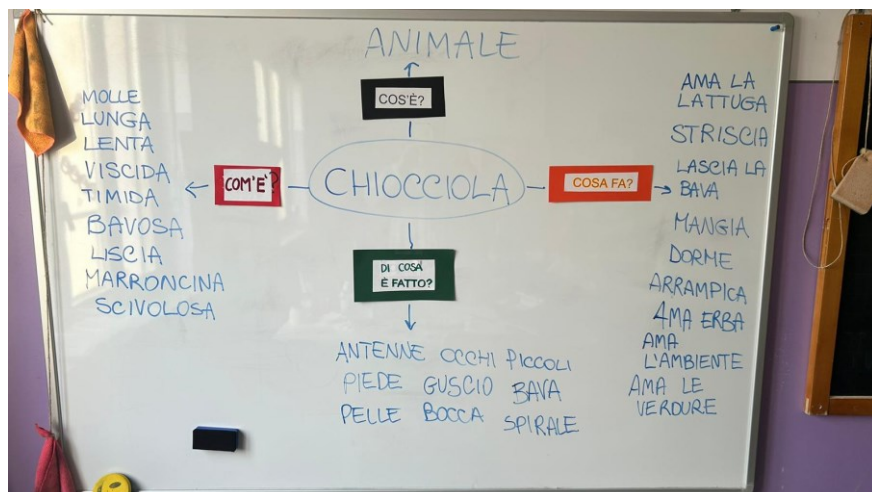 ANIMALE
COS'È?
MOLLE
LUNGA
LENTA
VISCIDA
TIMIDA
BAVOSA
LISCIA
MARRONCINA
SCIVOLOSA
COM'E'?
CHIOCCIOLA
COSA FA?
AMA LA
LATTUGA
STRISCIA
LASCIA LA
BAVA
MANGIA
DORME
ARRAMPICA
AMA ERBA
AMA
L'AMBIENTE
AMA LE
VERDURE
DI COSA
È FATTO?
ANTENNE OCCHI PICCOLI
PIEDE GUSCIO BAVA
PELLE BOCCA SPIRALE